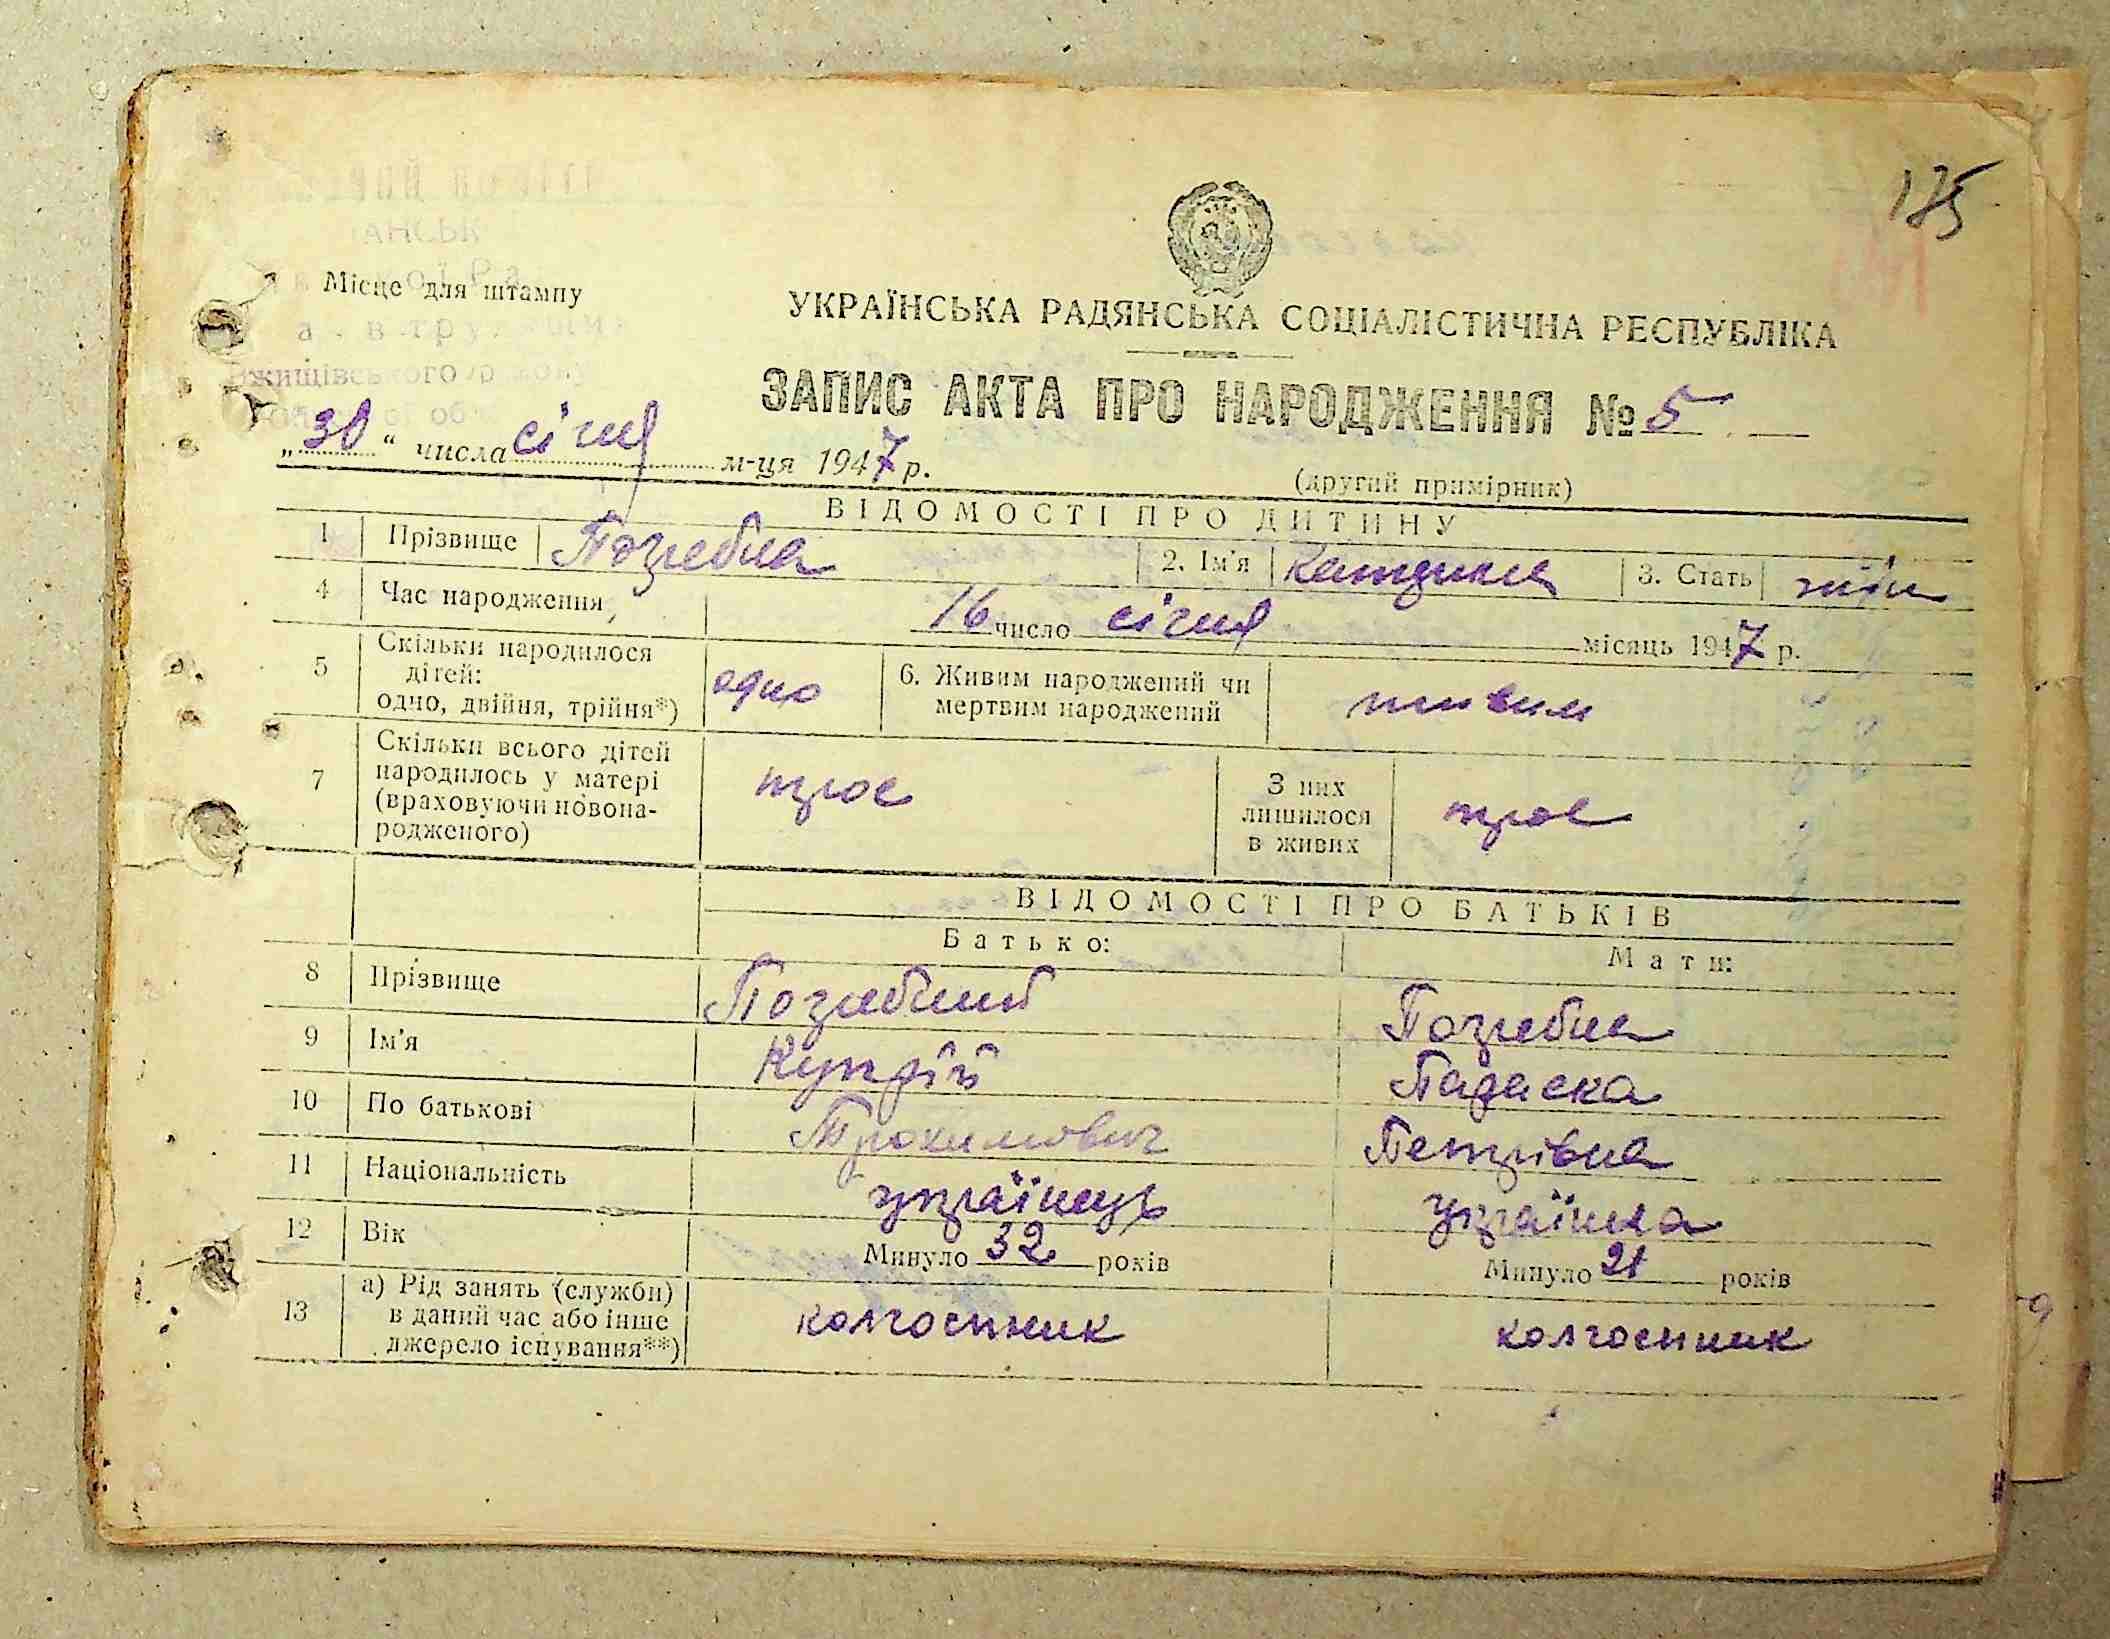 175
Місце для штампу
УКРАЇНСЬКА РАДЯНСЬКА СОЦІАЛІСТИЧНА РЕСПУБЛІКА
ЗАПИС АКТА ПРО НАРОДЖЕННЯ № 5
„30“ числа січня м-ця 1947 р.
(другий примірник)
ВІДОМОСТІ ПРО ДИТИНУ
1 Прізвище Погребна 2. Ім'я Катерина 3. Стать жін
4 Час народження 16 число січня місяць 1947 р.
5 Скільки народилося дітей: одно, двійня, трійня*) одно 6. Живим народжений чи мертвим народжений живим
7 Скільки всього дітей народилось у матері (враховуючи новонародженого) троє З них лишилося в живих троє
ВІДОМОСТІ ПРО БАТЬКІВ
Батько: Мати:
8 Прізвище Погребний Погребна
9 Ім'я Купрій Параска
10 По батькові Трохимович Петрівна
11 Національність українець українка
12 Вік Минуло 32 років Минуло 21 років
13 а) Рід занять (служби) в даний час або інше джерело існування**) колгоспник колгоспник